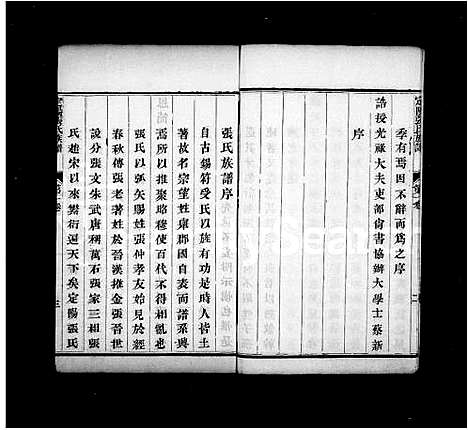 季有焉因不辭而爲之序
誥授光祿大夫吏部尙書協辦大學士蔡新
序
張氏族譜序
自古錫符受氏以族有功是時人皆土
著故名宗望姓雍郡因自表而譜系興
焉所以推聚穆使百代不得相亂也
張氏以弧矢賜姓張仲孝友始見於經
春秋傳張老著姓於晉漢推金張晉世
說分張文朱武唐稱萬石張家三相張
氏趙宋以來繁衍遍天下矣定陽張氏